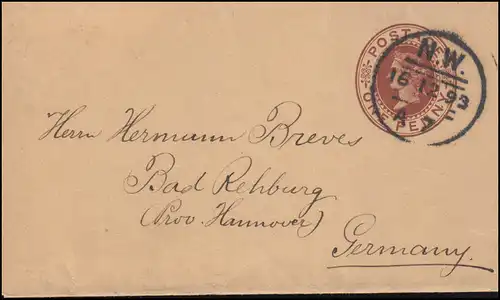 POSTAGE
ONE PENNY
N.W.
93
Herrn Hermann Breves
Bad Rehburg
(Prov. Hannover)
Germany.